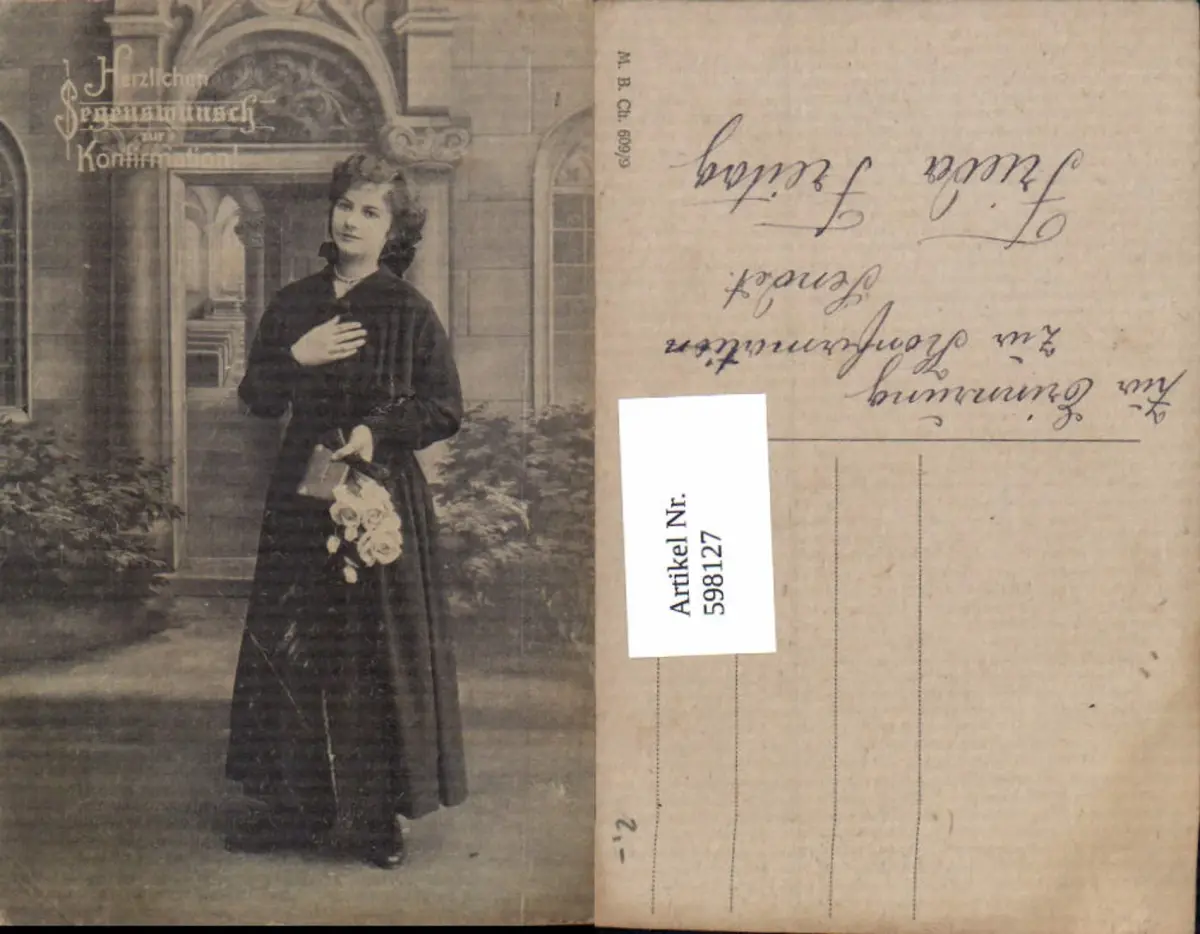 Herzlichen
Segenswunsch
zur
Konfirmation!
M. B. Ch. 609/9
Zur Erinnrung
zur Konfirmation
Sendet
Frieda Freitag
Artikel Nr.
598127
2,-